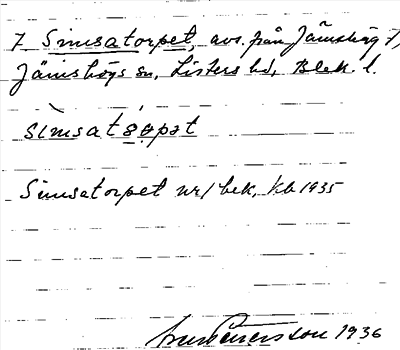 7 Simsatorpet, avs. från Jämshög 7,
Jämshögs sn, Listers hd, Blek. l.
Simsatorpet nr 1 bek, kb 1935
1936